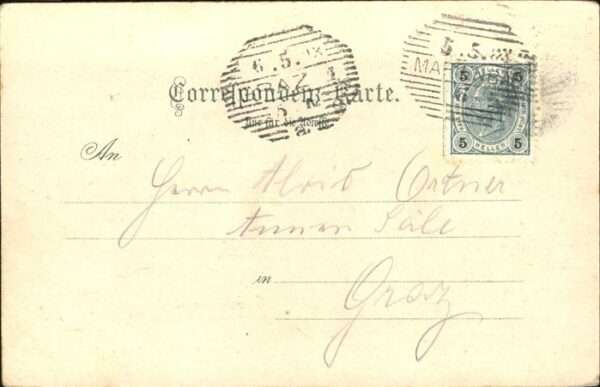 6.5.03
5.5.03
MA
5 5
Correspondenz-Karte.
Nur für die Adresse
5 HELLER 5
An
Herrn Alois Ortner
Annen Säle
in
Graz